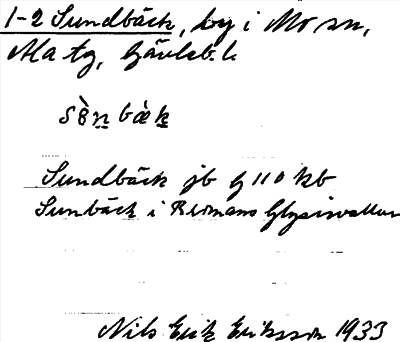 1-2 Sundbäck, by i Mo sn,
Ala tg, Gävleb. l.
sɞ̀n bàk
Sundbäck jb g 110 kb
Sunbäck i Redmans Glysisvallur
Nils Erik Eriksson 1933